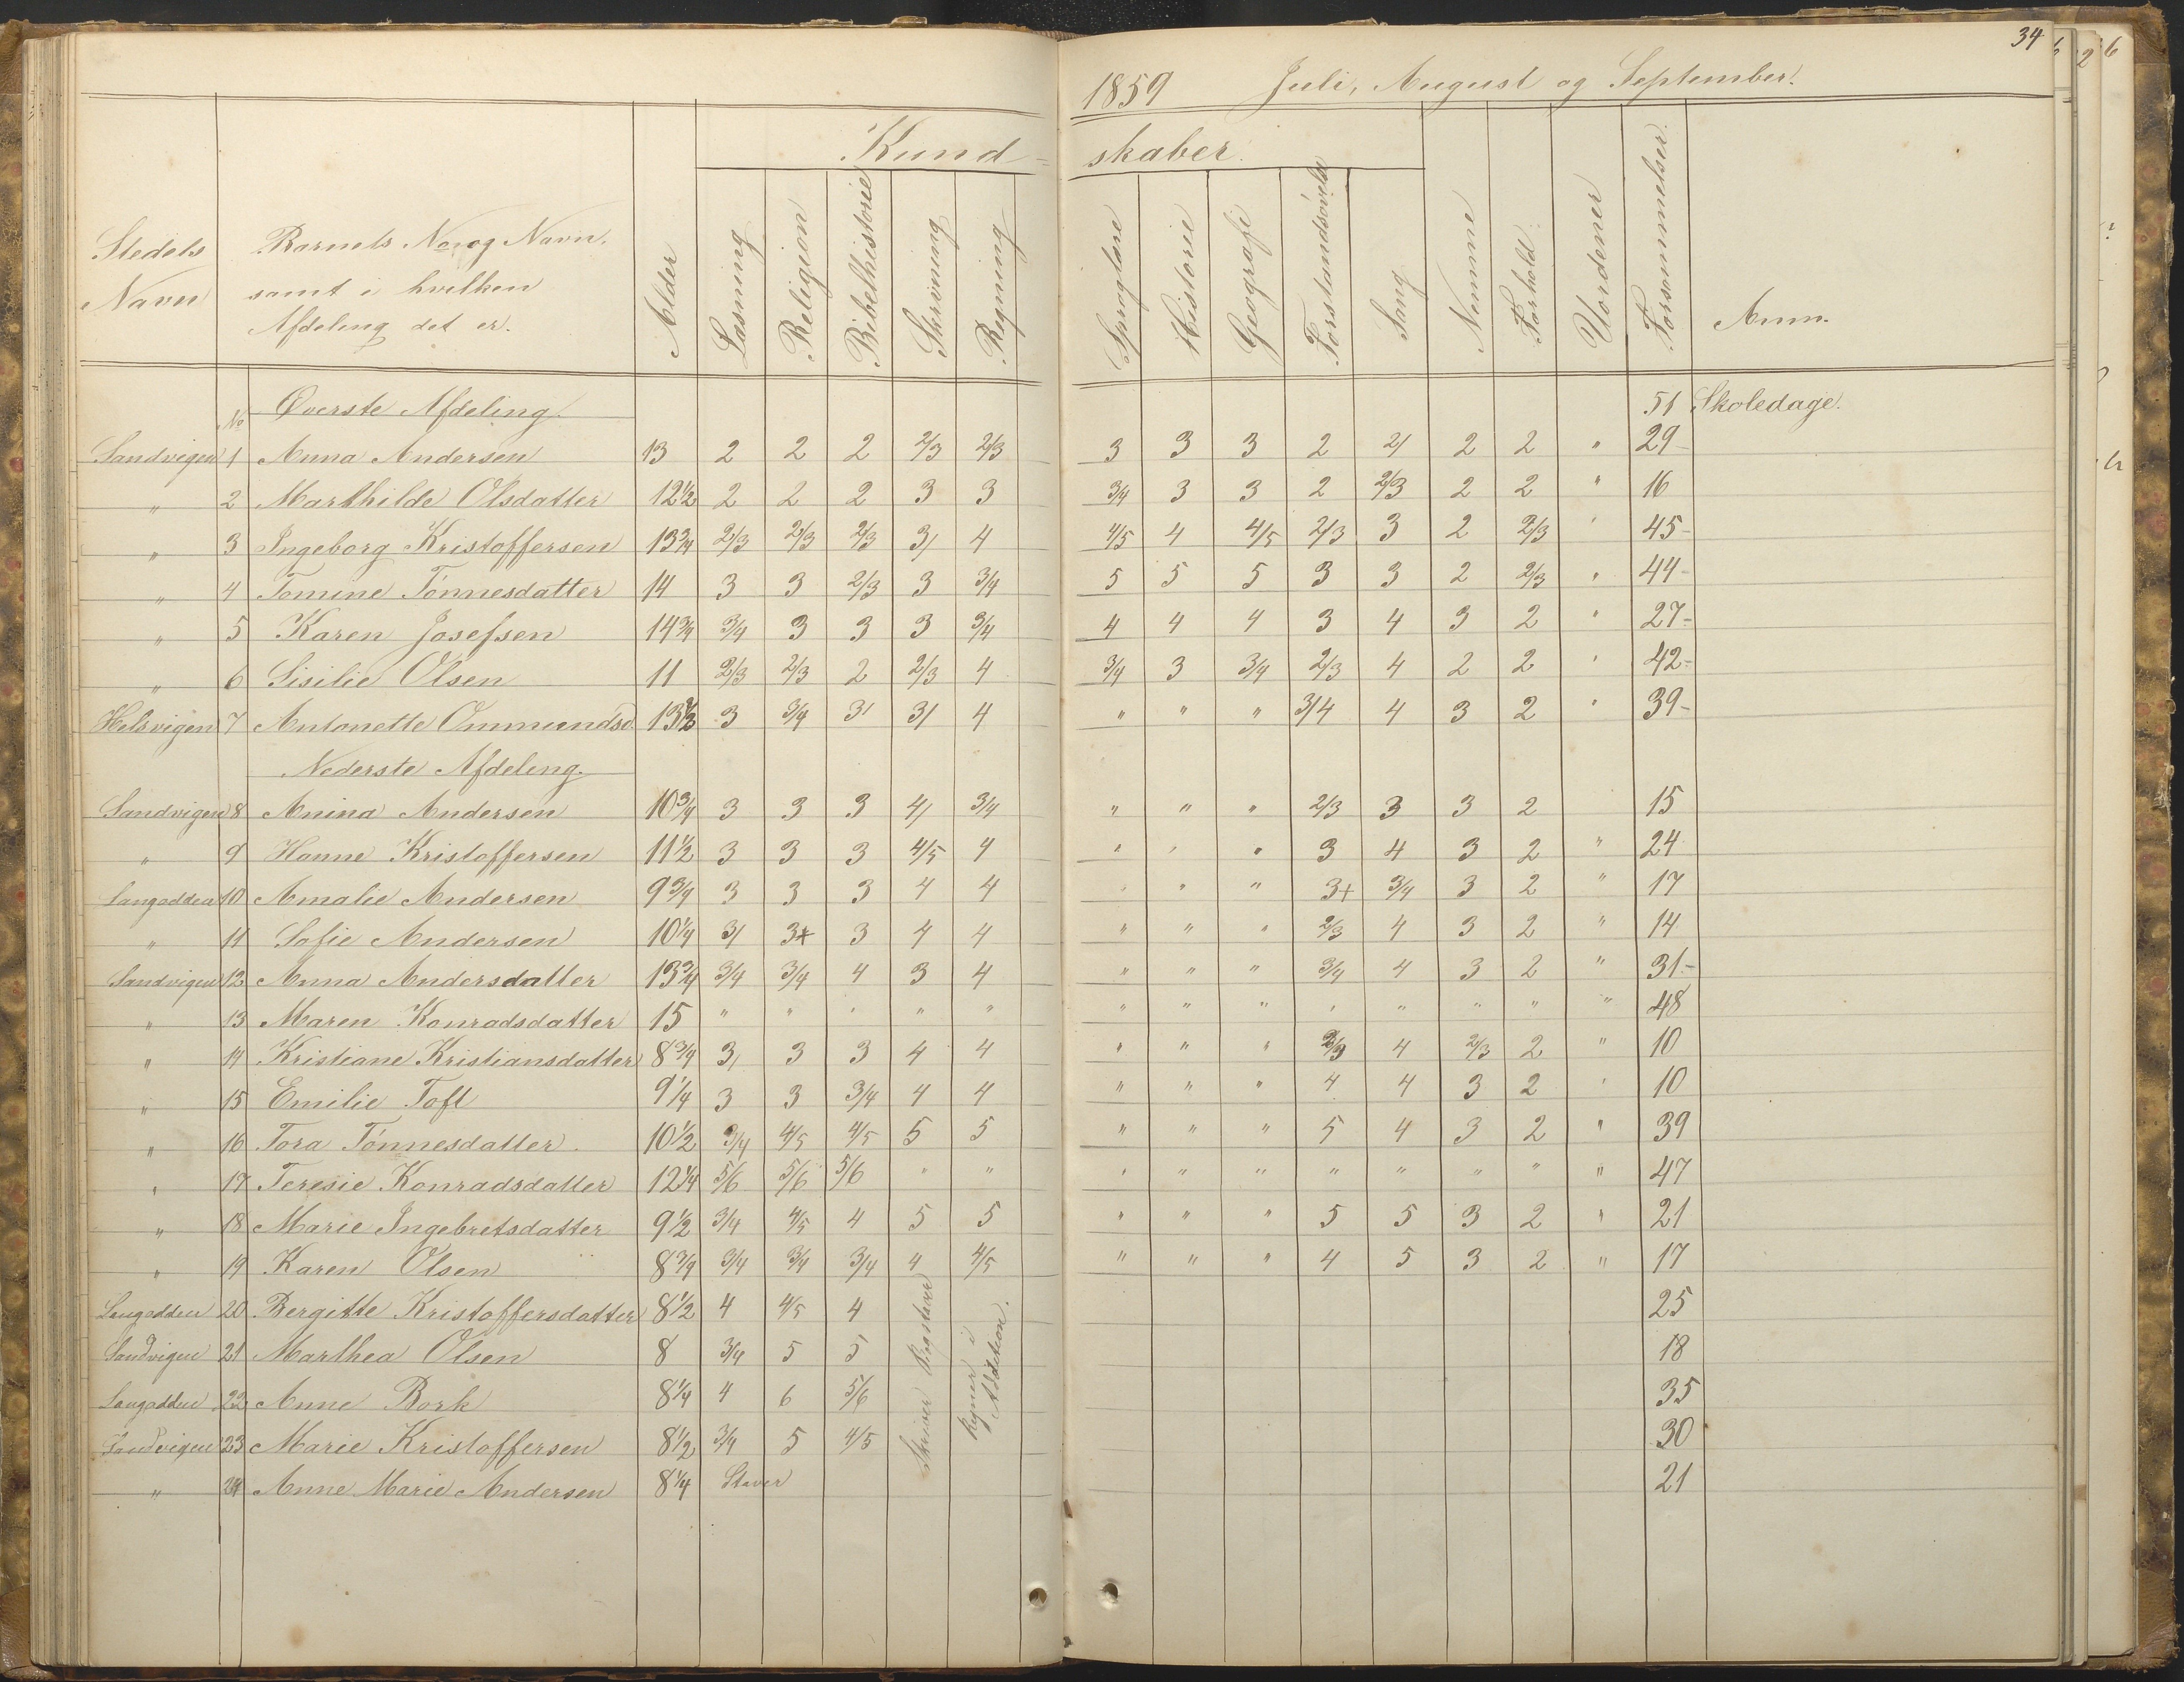 34
1859 Juli, August og September.
Kund- skaber.
Stedets Navn
Barnets No og Navn, samt i hvilken Afdeling det er.
Alder
Læsning
Religion
Bibelhistorie
Skrivning
Regning
Sproglære
Historie
Geografi
Forstandsøvelse
Sang
Nemme
Forhold
Uordener
Forsømmelser
Anm.
No Øverste Afdeling. 51 Skoledage.
Sandvigen 1 Anna Andersen 13 2 2 2 2/3 2/3 3 3 3 2 2/ 2 2 " 29
" 2 Marthilde Olsdatter 12 1/2 2 2 2 3 3 3/4 3 3 2 2/3 2 2 " 16
" 3 Ingeborg Kristoffersen 13 3/4 2/3 2/3 2/3 3/ 4 4/5 4 4/5 2/3 3 2 2/3 " 45
" 4 Tomine Tönnesdatter 14 3 3 2/3 3 3/4 5 5 5 3 3 2 2/3 " 44
" 5 Karen Josefsen 14 3/4 3/4 3 3 3 3/4 4 4 4 3 4 3 2 " 27
" 6 Sisilie Olsen 11 2/3 2/3 2 2/3 4 3/4 3 3/4 2/3 4 2 2 " 42
Helsvigen 7 Antonette Ommundsd. 13 1/2 3 3/4 3/ 3/ 4 " " " 3/4 4 3 2 " 39
Nederste Afdeling.
Sandvigen 8 Anina Andersen 10 3/4 3 3 3 4/ 3/4 " " " 2/3 3 3 2 15
" 9 Hanne Kristoffersen 11 1/2 3 3 3 4/5 4 " " " 3 4 3 2 " 24
Langodden 10 Amalie Andersen 9 3/4 3 3 3 4 4 " " " 3+ 3/4 3 2 " 17
" 11 Sofie Andersen 10 1/4 3/ 3+ 3 4 4 " " " 2/3 4 3 2 " 14
Sandvigen 12 Anna Andersdatter 13 3/4 3/4 3/4 4 3 4 " " " 3/4 4 3 2 " 31
" 13 Maren Konradsdatter 15 " " " " " " " " " " " " " 48
" 14 Kristiane Kristiansdatter 8 3/4 3/ 3 3 4 4 " " " 2/3 4 2/3 2 " 10
" 15 Emilie Toft 9 1/4 3 3 3/4 4 4 " " " 4 4 3 2 " 10
" 16 Tora Tönnesdatter. 10 1/2 3/4 4/5 4/5 5 5 " " " 5 4 3 2 " 39
" 17 Teresie Konradsdatter 12 1/4 5/6 5/6 5/6 " " " " " " " " " " 47
" 18 Marie Ingebretsdatter 9 1/2 3/4 4/5 4 5 5 " " " 5 5 3 2 " 21
" 19 Karen Olsen 8 3/4 3/4 3/4 3/4 4 4/5 " " " 4 5 3 2 " 17
Langodden 20 Bergitte Kristoffersdatter 8 1/2 4 4/5 4 25
Sandvigen 21 Marthea Olsen 8 3/4 5 5 18
Langodden 22 Anne Bork 8 1/4 4 6 5/6 35
Sandvigen 23 Marie Kristoffersen 8 1/2 3/4 5 4/5 30
" 24 Anne Marie Andersen 8 1/4 Staver 21
Skriver Bogstaver
Regner i Addition.